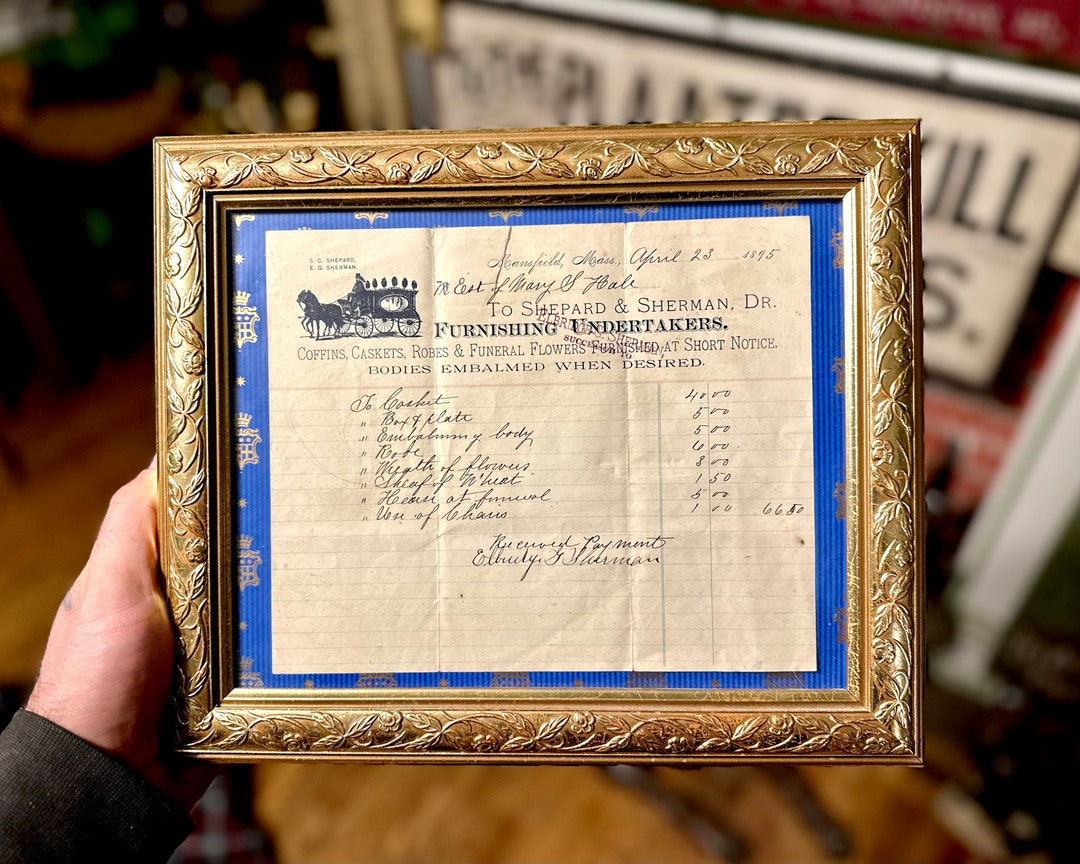 S. C. SHEPARD,
E. G. SHERMAN.
Mansfield, Mass., April 23 1895
M Est of Mary S Hale
TO SHEPARD & SHERMAN, DR.
FURNISHING UNDERTAKERS.
SUCCESSOR TO
COFFINS, CASKETS, ROBES & FUNERAL FLOWERS FURNISHED AT SHORT NOTICE.
BODIES EMBALMED WHEN DESIRED.
To Casket 40 00
" Box & plate 5 00
" Embalming body 5 00
" Robe 6 00
" Wreath of flowers 3 00
" Sheaf of Wheat 1 50
" Hearse at funeral 5 00
" Use of Chairs 1 00 66 50
Received Payment
Sherman
KILL
S.